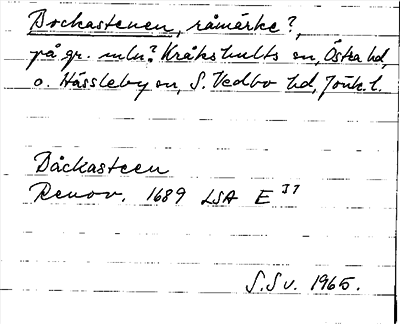 Bockastenen, råmärke?,
på gr. mln? Kråkshults sn, Östra hd,
o. Hässleby sn, S. Vedbo hd, Jönk. l.
Båckasteen
Renov. 1689 LSA E
S.Sv. 1965.